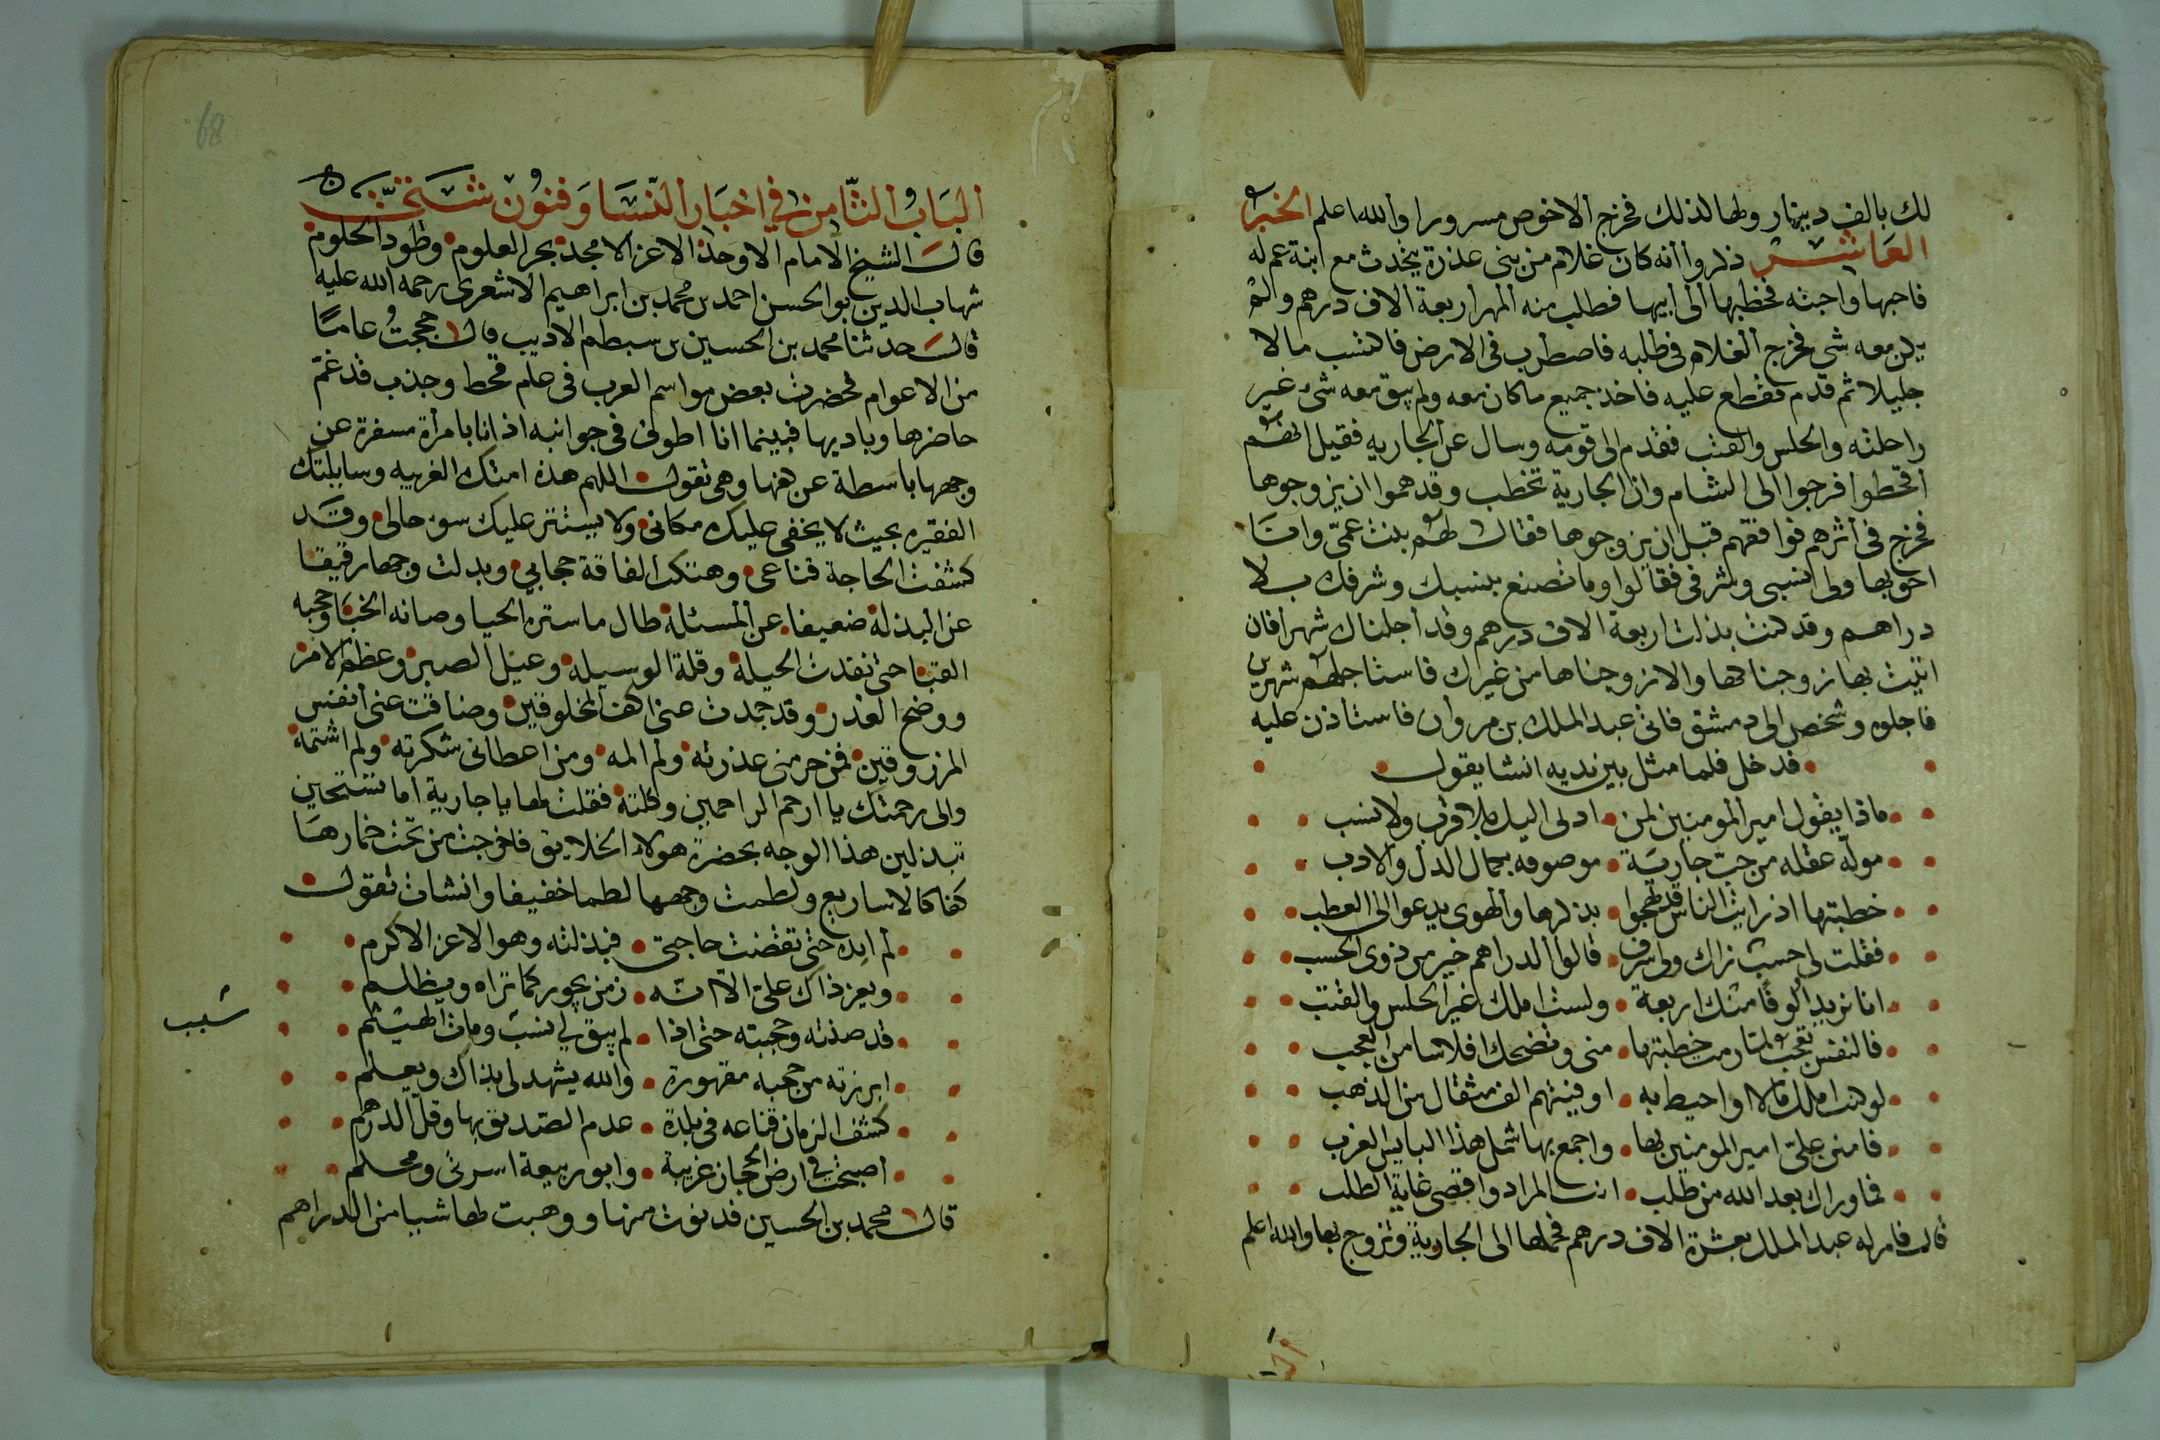 لك بالف دينار ولها لذلك فخرج الاخوص مسرورا والله اعلم الخبر
العاشر ذكروا أنه كان غلام من بني عذرة يتحدث مع ابنة عم له
فاحبها واحبته فخطبها الى ابيها فطلب منه المهر اربعة الاف درهم ولم
يكن معه شي فخرج الغلام في طلبه فاضطرب في الارض فاكتسب مالا
جليلا ثم قدم فقطع عليه فاخذ جميع ما كان معه ولم يبق معه شيء غير
راحلته والحلس والقتب فقدم الى قومه وسال عن الجاريه فقيل انهم
اقحطوا فرحوا الى الشام وان الجارية تخطب وقد هموا ان يزوجوها
فخرج في أثرهم فوافقهم قبل ان يزوجوها فقال لهم بنت عمي وانا
احق بها ولى نسبي وشرفي فقالوا وما نصنع بنسبك وشرفك بلا
دراهم وقد كنت بذلت اربعة الاف درهم وقد أجلناك شهرا فان
اتيت بها زوجناكها والا زوجناها من غيرك فاستاجلهم شهرين
فاجلوه وشخص الى دمشق فاتى عبد الملك بن مروان فاستاذن عليه
فدخل فلما مثل بين يديه انشا يقول
ماذا يقول امير المومنين لمن ۰ ادلى اليك بلا قرب ولا نسب
مولّه عقله من حبّ جارية ۰ موصوفه بجمال الدل والادب
خطبتها اذ رايت الناس قد لهجوا ۰ بذكرها والهوى يدعو الى العطب
فقلت لي حسب زاك ولي شرف ۰ قالوا الدراهم خير من ذوي الحسب
انا نريد ألوفا منك اربعة ۰ ولست املك غير الحلس والقتب
فالنفس تعجب لمّا رمت خطبتها ۰ مني وتضحك افلاسا من العجب
لو كنت املك مالا او احيط به ۰ اوفيتهم الف مثقال من الذهب
فامنن عليّ امير المومنين بها ۰ واجمع بها شمل هذا البايس العزب
فما وراك بعد الله من طلب ۰ انت المراد واقصى غاية الطلب
قال فامر له عبد الملك بعشرة الاف درهم فحملها الى الجارية وتزوج بها والله اعلم
الباب الثامن في اخبار النسا وفنون شتى
قال الشيخ الامام الاوحد الاعز الامجد بحر العلوم وطود الحلوم
شهاب الدين بو الحسن احمد بن محمد بن ابراهيم الاشعري رحمه الله عليه
قال حدثنا محمد بن الحسين بن سبطم الاديب قال حججتُ عاما
من الاعوام فحضرت بعض مواسم العرب في عام قحط وجذب قد غمّ
حاضرها وباديها فبينما انا اطوف في جوانبه اذ انا بامرأة مسفرة عن
وجهها باسطة عن كفها وهي تقول اللهم هذه امتك الغريبه وسايلتك
الفقيره بحيث لا يخفى عليك مكاني ولا يستتر عليك سوء حالي وقد
كشفت الحاجة قناعي وهتكت الفاقة حجابي وبدلت وجها رقيقا
عن البذلة ضعيفا عن المسئلة طال ما ستره الحيا وصانه الخبا وحجبه
القبا حتى نفدت الحيلة وقلة الوسيله وعيل الصبر وعظم الامر
ووضح العذر وقد جمدت عني اكف المخلوقين وضاقت عني أنفس
المرزوقين فمن حرمني عذرته ولم المه ومن اعطاني شكرته ولم اشتمه
والى رحمتك يا ارحم الراحمين وكلته فقلت لها يا جارية اما تستحين
تبذلين هذا الوجه بحضرة هولاء الخلايق فاخرجت من تحت خمارها
كفا كالاساريع ولطمت وجهها لطما خفيفا وانشات تقول
لم ابده حتى تقضت حاجتي ۰ فبذلته وهو الاعز الاكرم
ويعز ذاك عليّ الا انّه ۰ زمن يجور كما تراه ويظلم
قد صنته وحجبته حتى اذا ۰ لم يبق لي نسب ومات الهيثم
شبب
ابرزته من حجبه مقهورة ۰ والله يشهد لي بذاك ويعلم
كشف الزمان قناعه في بلدة ۰ عدم الصديق بها وقلّ الدرهم
اصبحت في ارض الحجاز غريبة ۰ وابو ربيعة اسرتي ومحلم
قال محمد بن الحسين فدنوت منها ووهبت لها شيا من الدراهم
68